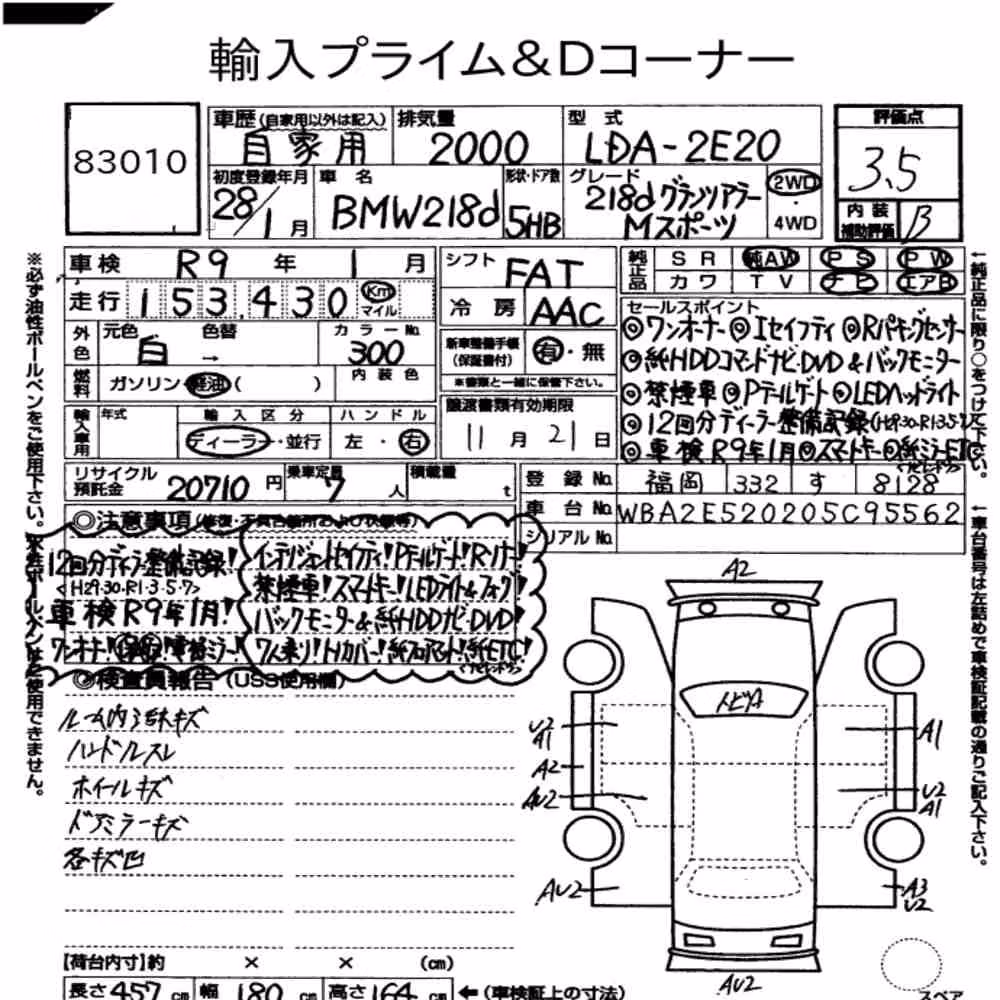 輸入プライム&Dコーナー
83010
車歴(自家用以外は記入) 自家用
排気量 2000
型式 LDA-2E20
評価点 3.5
内装補助評価 B
初度登録年月 28/1月
車名 BMW218d
形状・ドア数 5HB
グレード 218d グランツアラー Mスポーツ
2WD・4WD
車検 R9年1月
シフト FAT
純正品 SR 純AW PS PW
カワ TV ナビ エアB
走行 153,430 Km マイル
冷房 AAC
外色 元色 白 色替 → カラーNo. 300
内装色
燃料 ガソリン・軽油( )
新車整備手帳(保証書付) 有・無
※書類と一緒に保管下さい。
輸入車用 年式 輸入区分 ディーラー・並行 ハンドル 左・右
譲渡書類有効期限 11月21日
セールスポイント
◎ワンオーナー ◎Iセイフティ ◎Rパーキングセンサー
◎純HDDコマンドナビ・DVD&バックモニター
◎禁煙車 ◎Pテールゲート ◎LEDヘッドライト
◎12回分ディーラー整備記録(H29・30・R1・3・5・7)
◎車検R9年1月 ◎スマートキー ◎純ミラーETC
リサイクル預託金 20710円
乗車定員 7人
積載量 t
登録No. 福岡 332 す 8128
車台No. WBA2E520205C95562
シリアルNo.
◎注意事項(修復・不具合箇所および状態等)
12回分ディーラー整備記録!
<H29・30・R1・3・5・7>
車検R9年1月!
インテリジェントセイフティ!Pテールゲート!Rソナー!
禁煙車!スマートキー!LEDライト&フォグ!
バックモニター&純HDDナビ・DVD!
7人乗り!Hカバー!純フロアマット!純ETC!
◎検査員報告(USS使用欄)
ルーム内汚れキズ
ハンドルスレ
ホイールキズ
ドアミラーキズ
各キズ凹
A2
トビA
U2
A1
A2
AU2
AU2
A1
U2
A1
A3
U2
AU2
スペア
【荷台内寸】約 × × (cm)
長さ457cm 幅180cm 高さ164cm ←(車検証上の寸法)
※必ず油性ボールペンをご使用下さい。
←純正品に限り○をつけて下さい。
←車台番号は左詰めで車検証記載の通りご記入下さい。